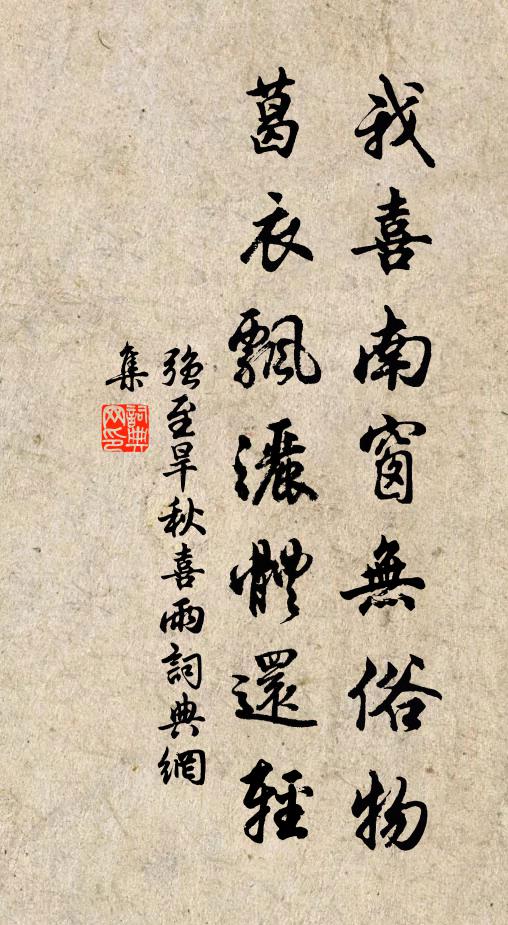 我喜南窗無俗物
葛衣飄灑體還輕
強至旱秋喜雨詞典網
集
詞典
网印